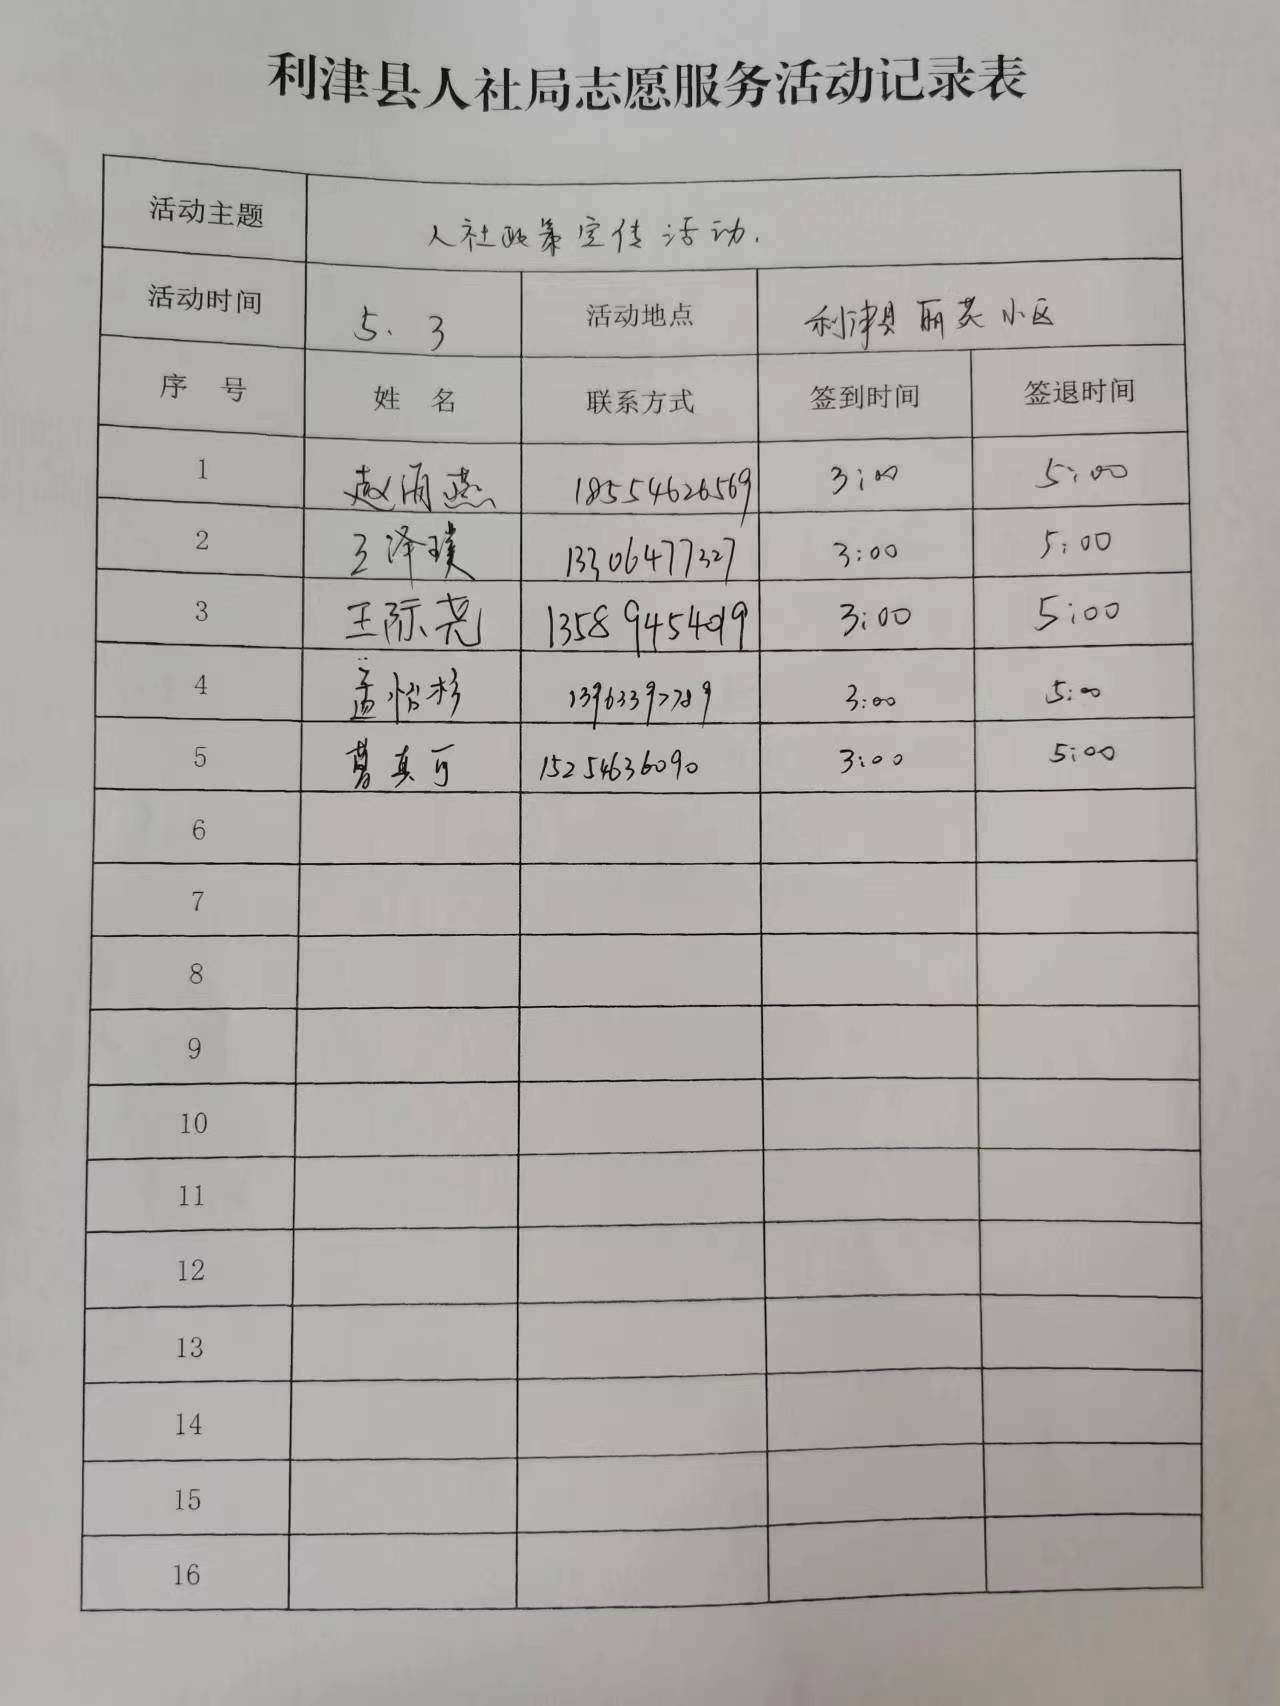 利津县人社局志愿服务活动记录表
活动主题 人社政策宣传活动.
活动时间 5.3 活动地点 利津县丽苑小区
序号 姓名 联系方式 签到时间 签退时间
1 赵海燕 18554626569 3:00 5:00
2 王泽璞 13306477327 3:00 5:00
3 王际尧 13589454019 3:00 5:00
4 孟怡杉 3:00 5:00
5 曹真可 15254636090 3:00 5:00
6
7
8
9
10
11
12
13
14
15
16